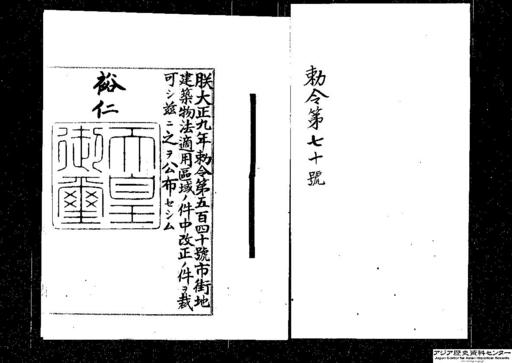 勅令第七十號
朕大正九年勅令第五百四十號市街地
建築物法適用區域ノ件中改正ノ件ヲ裁
可シ茲ニ之ヲ公布セシム
裕仁
天皇
御璽
アジア歴史資料センター
Japan Center for Asian Historical Records